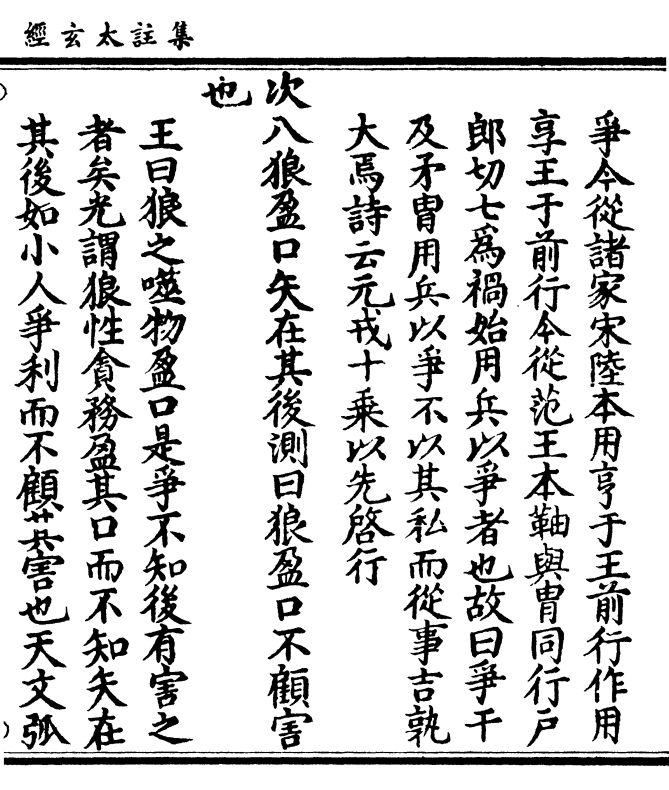 集註太玄經
爭今從諸家宋陸本用亨于王前行作用
享王于前行今從范王本䩜與冑同行戶
郎切七為禍始用兵以爭者也故曰爭干
及矛冑用兵以爭不以其私而從事吉孰
大焉詩云元戎十乘以先啓行
次八狼盈口矢在其後測曰狼盈口不顧害
也
王曰狼之噬物盈口是爭不知後有害之
者矣光謂狼性貪務盈其口而不知矢在
其後如小人爭利而不顧其害也天文弧